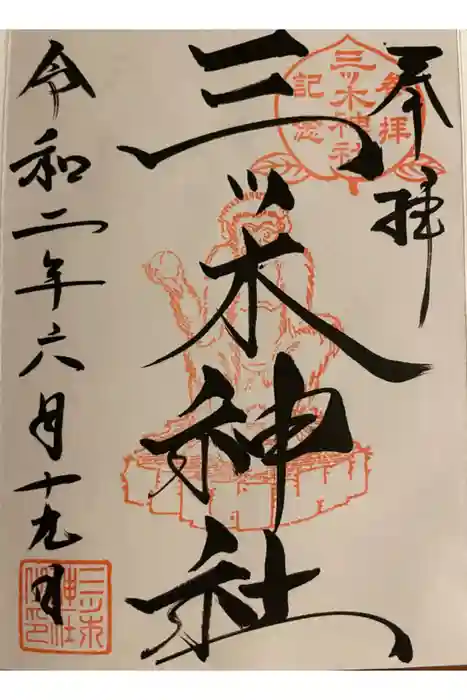 奉拝
三ッ木神社
令和二年六月十九日
参拝
三ッ木神社
記念
三ツ木
神社